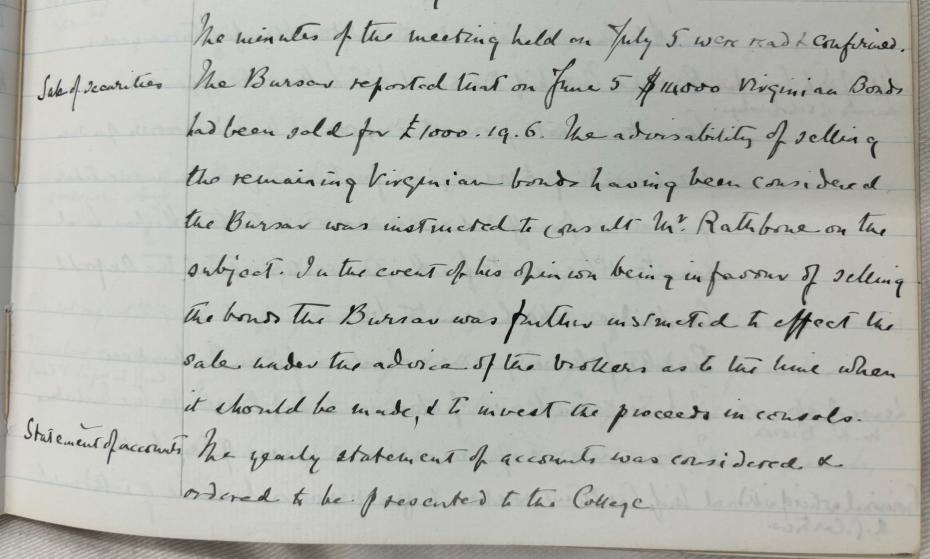 The minutes of the meeting held on July 5 were read & confirmed.
Sale of securities
The Bursar reported that on June 5 $14000 Virginian Bonds
had been sold for £1000.19.6. The advisability of selling
the remaining Virginian bonds having been considered
the Bursar was instructed to consult Mr. Rathbone on the
subject. In the event of his opinion being in favour of selling
the bonds the Bursar was further instructed to effect the
sale under the advice of the brokers as to the time when
it should be made, & to invest the proceeds in consols.
Statement of accounts
The yearly statement of accounts was considered &
ordered to be presented to the College